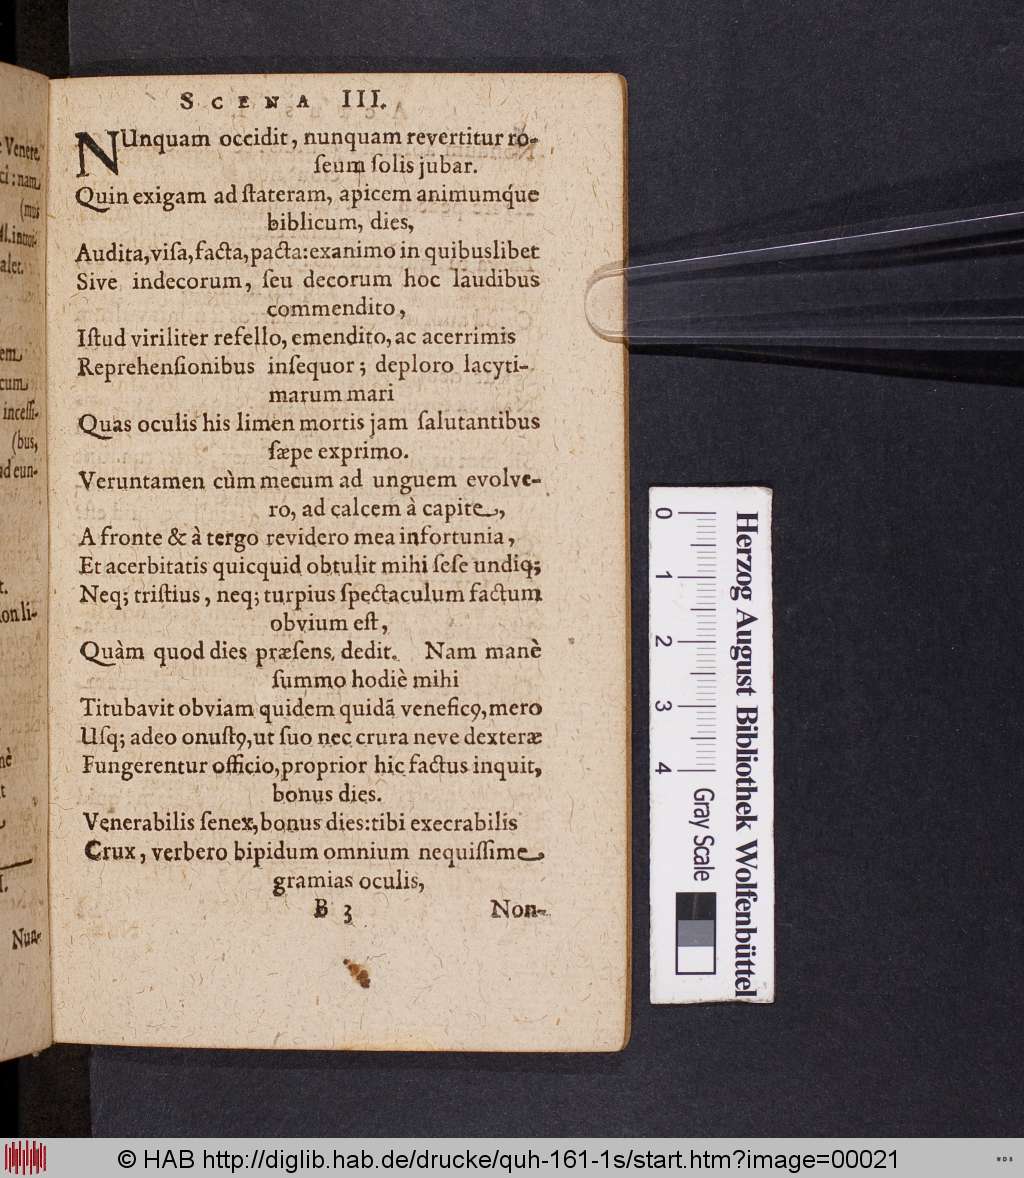 : Venere
ci: nam
(mus
M. introi-
alet.
em
cum
incessi-
(bus,
ad eun-
t.
on li-
nè
t
I.
Nun-
SCENA III.
NUnquam occidit, nunquam revertitur ro-
ſeum ſolis jubar.
Quin exigam ad ſtateram, apicem animumq́ue
biblicum, dies,
Audita, viſa, facta, pacta: exanimo in quibuslibet
Sive indecorum, ſeu decorum hoc laudibus
commendito,
Iſtud viriliter refello, emendito, ac acerrimis
Reprehenſionibus inſequor; deploro lacyti-
marum mari
Quas oculis his limen mortis jam ſalutantibus
ſæpe exprimo.
Veruntamen cùm mecum ad unguem evolve-
ro, ad calcem à capite,
A fronte & à tergo revidero mea infortunia,
Et acerbitatis quicquid obtulit mihi ſeſe undiq;
Neq; triſtius, neq; turpius ſpectaculum factum
obvium eſt,
Quàm quod dies præſens, dedit. Nam manè
ſummo hodiè mihi
Titubavit obviam quidem quidã venefic9, mero
Uſq; adeo onuſt9, ut ſuo nec crura neve dexteræ
Fungerentur officio, proprior hic factus inquit,
bonus dies.
Venerabilis ſenex, bonus dies: tibi execrabilis
Crux, verbero bipidum omnium nequiſſime
gramias oculis,
B 3 Non-
0 1 2 3 4
Gray Scale
Herzog August Bibliothek Wolfenbüttel
© HAB http://diglib.hab.de/drucke/quh-161-1s/start.htm?image=00021